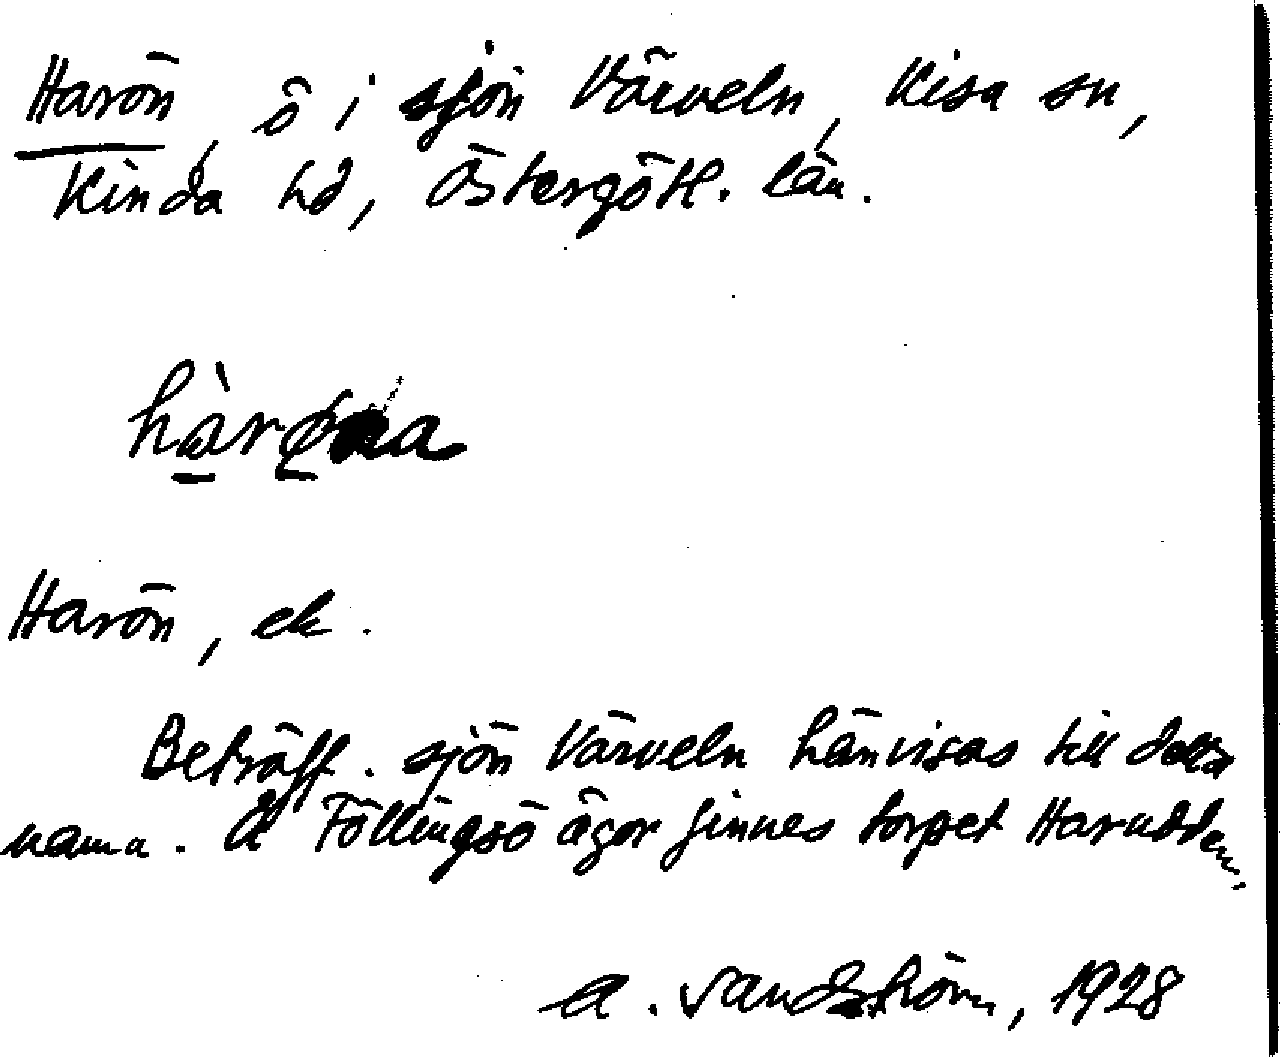 Harön, ö i sjön Värveln, Kisa sn,
Kinda hd, Östergötl. län.
Harön, ek.
Beträff. sjön Värveln hänvisas till detta
namn. Å Föllingsö ägor finnes torpet Harudden.
A. Sandström, 1928